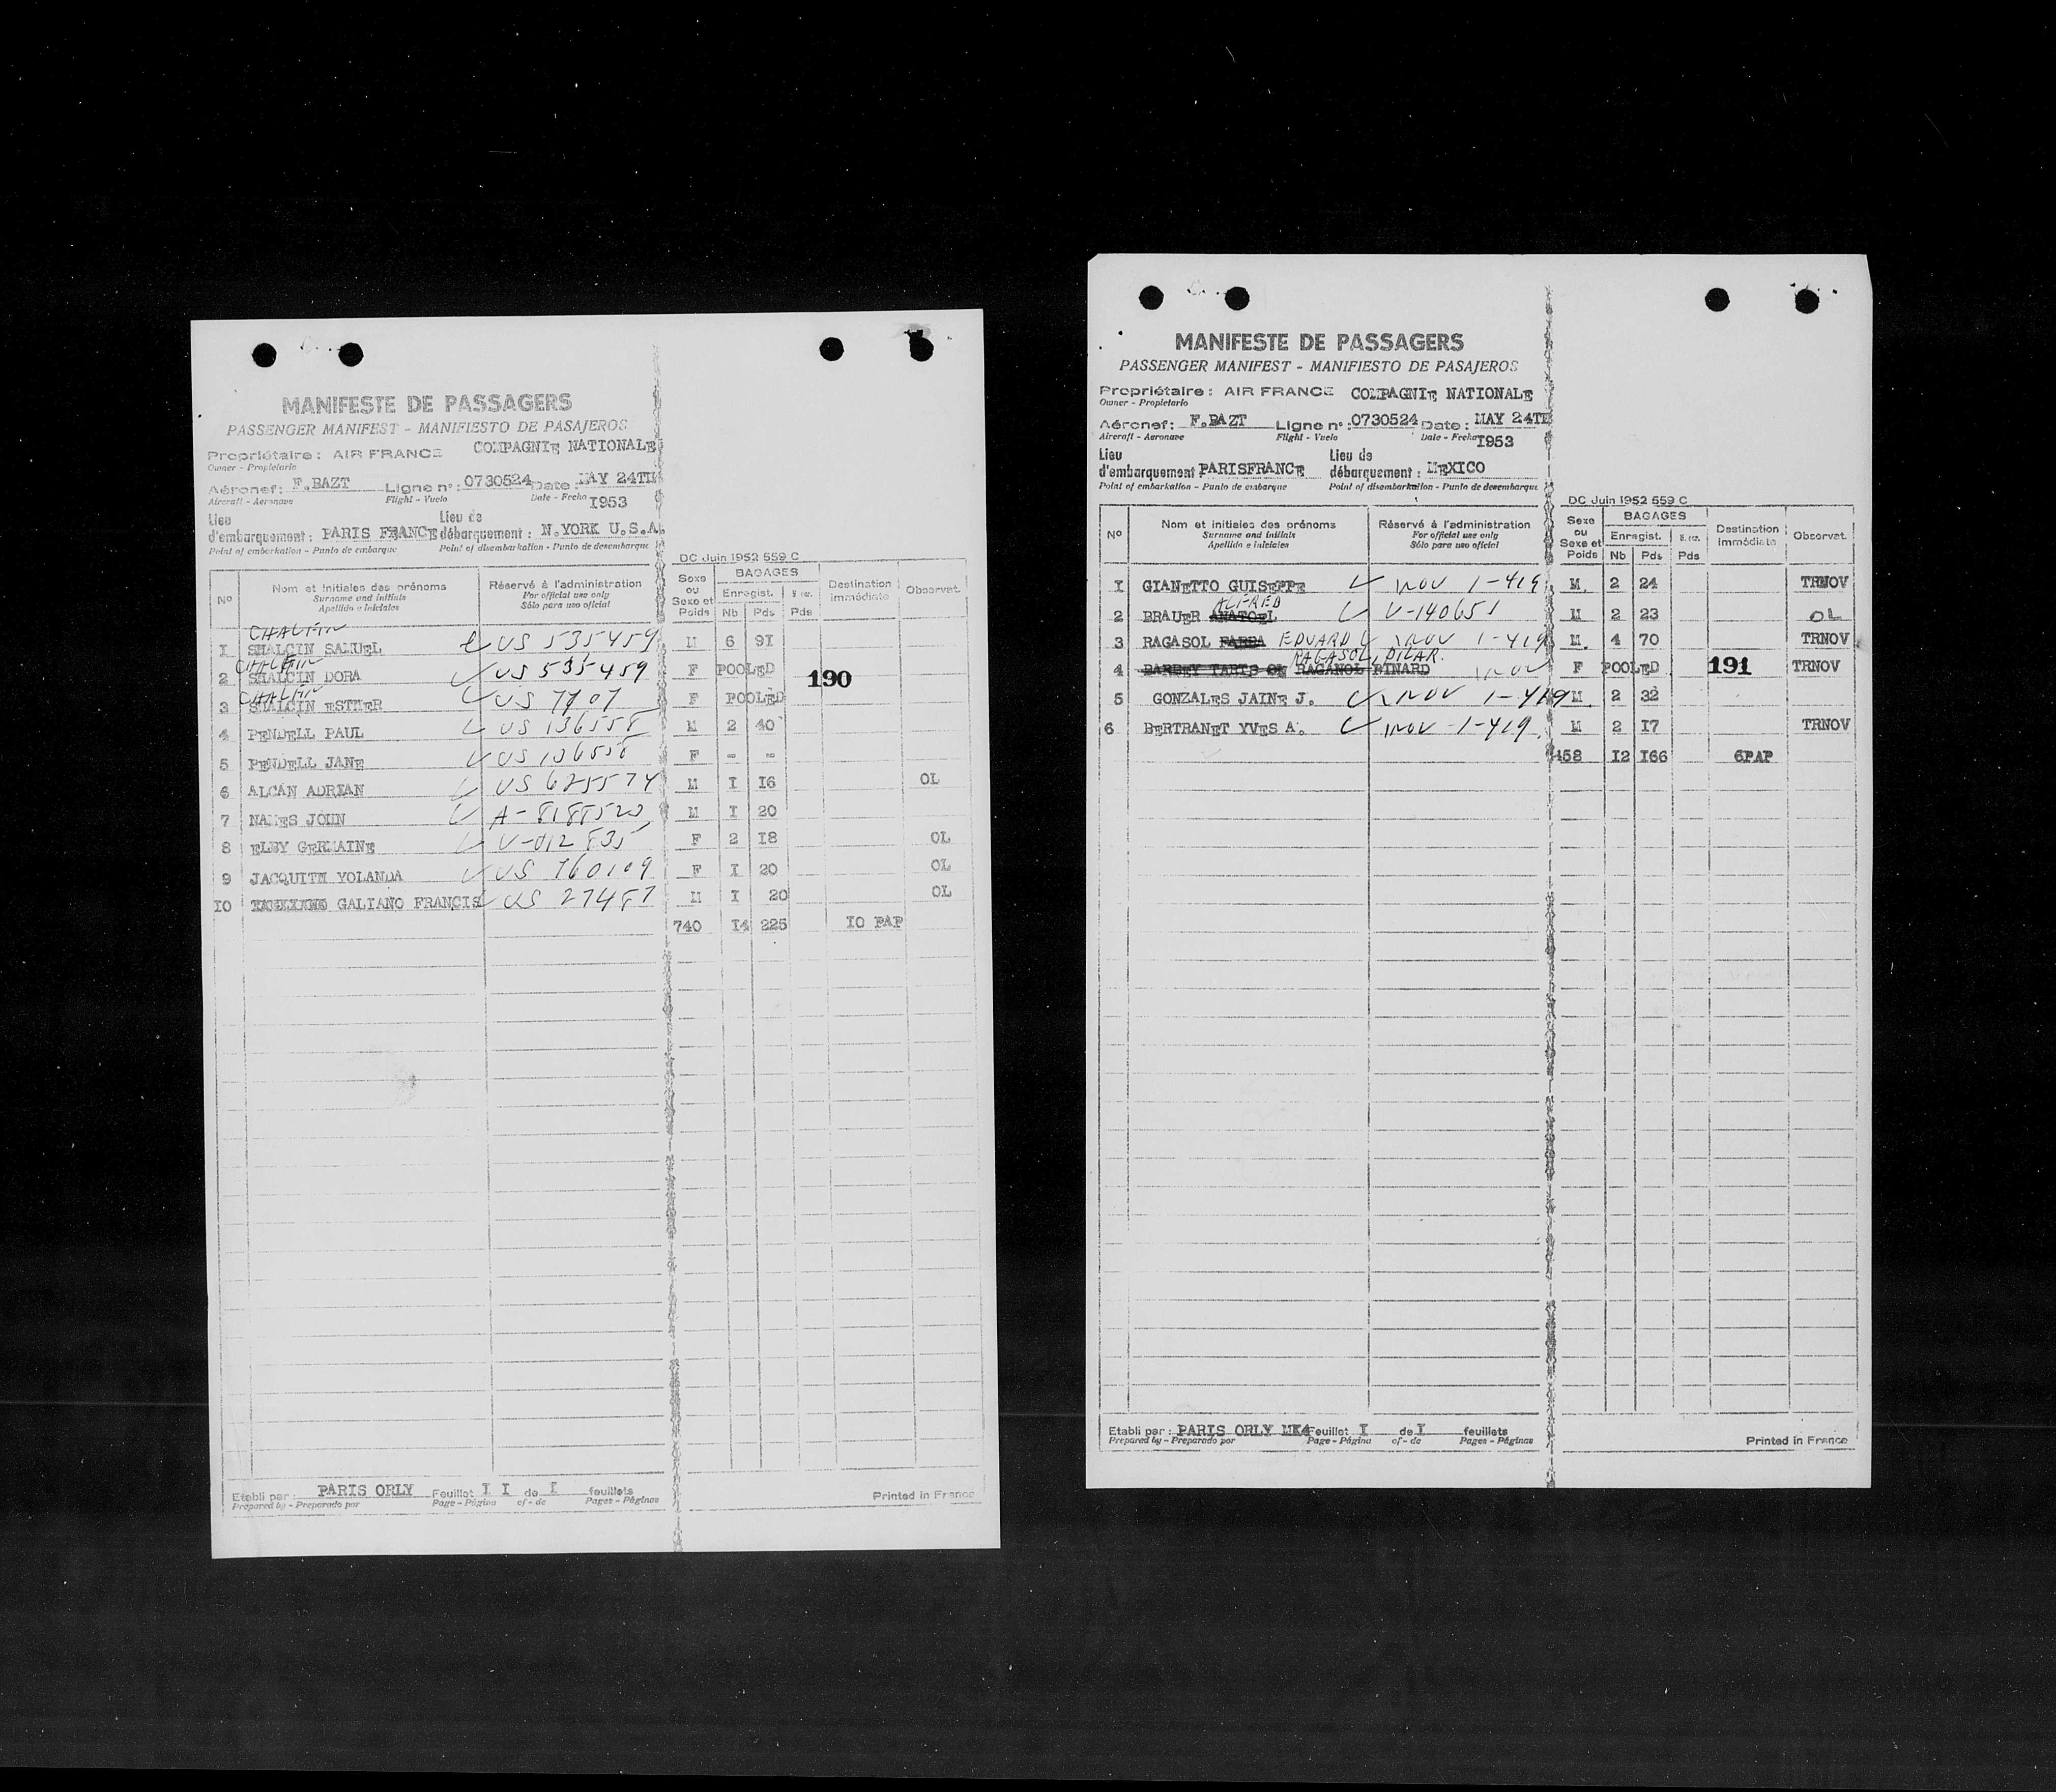 MANIFESTE DE PASSAGERS
PASSENGER MANIFEST - MANIFIESTO DE PASAJEROS
Propriétaire : AIR FRANCE COMPAGNIE NATIONALE
Owner - Propietario
Aéronef : F.BAZT Ligne n° : 0730524 Date : MAY 24TH
Aircraft - Aeronave Flight - Vuelo Date - Fecha I953
Lieu Lieu de
d'embarquement : PARIS FRANCE débarquement : N.YORK U.S.A.
Point of embarkation - Punto de embarque Point of disembarkation - Punto de desembarque
DC Juin 1952 559 C
Nº Nom et initiales des prénoms Réservé à l'administration Sexe ou Sexe et Poids BAGAGES Destination immédiate Observat.
Surname and initials For official use only Enregist.
Apellido e iniciales Sólo para uso oficial Nb Pds Pds
CHALFIN
I SHALCIN SAMUEL US 535459 M 6 9I
CHALFIN
2 SHALCIN DORA US 535459 F POOLED 190
CHALFIN
3 SHALCIN ESTHER US 7707 F POOLED
4 PENDELL PAUL US 136558 M 2 40
5 PENDELL JANE US 136558 F - -
6 ALCAN ADRIAN US 625574 M I I6 OL
7 NAMES JOHN A-8188520 M I 20
8 ELBY GERMAINE V-012835 F 2 I8 OL
9 JACQUITH YOLANDA US 760109 F I 20 OL
IO GALIANO FRANCIS US 27487 M I 20 OL
740 I4 225 IO PAP
Etabli par : PARIS ORLY Feuillet I I de I feuillets
Prepared by - Preparado por Page - Página of - de Pages - Páginas
Printed in France
MANIFESTE DE PASSAGERS
PASSENGER MANIFEST - MANIFIESTO DE PASAJEROS
Propriétaire : AIR FRANCE COMPAGNIE NATIONALE
Owner - Propietario
Aéronef : F.BAZT Ligne n° : 0730524 Date : MAY 24TH
Aircraft - Aeronave Flight - Vuelo Date - Fecha I953
Lieu Lieu de
d'embarquement PARISFRANCE débarquement : MEXICO
Point of embarkation - Punto de embarque Point of disembarkation - Punto de desembarque
DC Juin 1952 559 C
Nº Nom et initiales des prénoms Réservé à l'administration Sexe ou Sexe et Poids BAGAGES Destination immédiate Observat.
Surname and initials For official use only Enregist.
Apellido e iniciales Sólo para uso oficial Nb Pds Pds
I GIANETTO GUISEPPE INOV 1-419 M. 2 24 TRNOV
ALFRED
2 BRAUER ANATOEL V-140651 M 2 23 OL
3 RAGASOL FARBA EDUARD INOV 1-419 M. 4 70 TRNOV
RAGASOL, PILAR.
4 RAGANOL PINARD INOV F POOLED 191 TRNOV
5 GONZALES JAINE J. INOV 1-419 M. 2 32
6 BERTRANET YVES A. INOV 1-419. M 2 I7 TRNOV
458 I2 I66 6PAP
Etabli par : PARIS ORLY MK4 Feuillet I de I feuillets
Prepared by - Preparado por Page - Página of - de Pages - Páginas
Printed in France